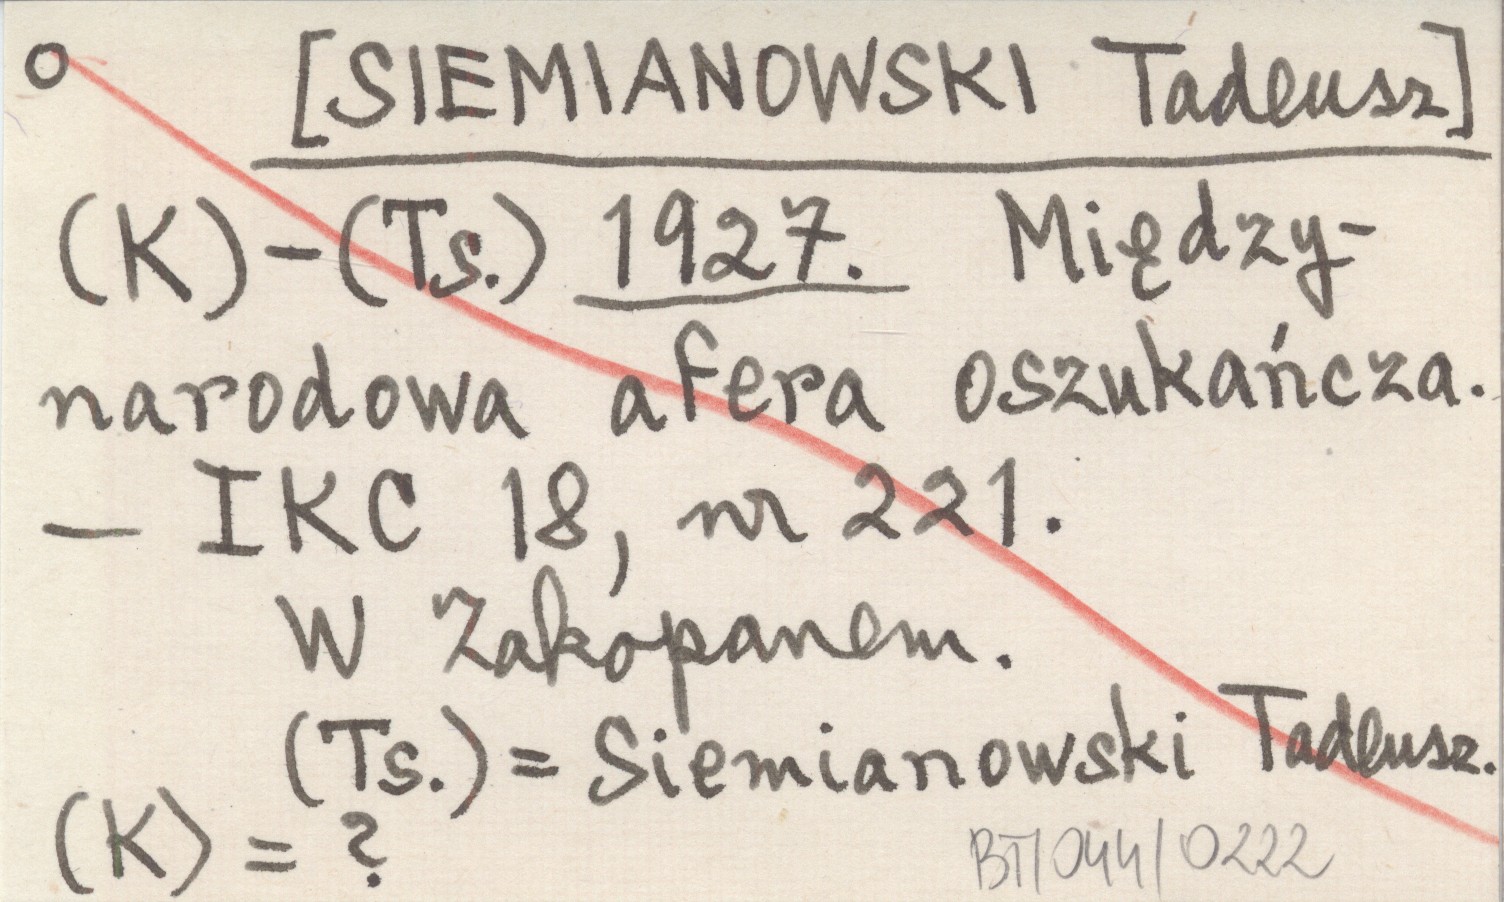 o [SIEMIANOWSKI Tadeusz]
(K)-(Ts.) 1927. Między-
narodowa afera oszukańcza.
— IKC 18, nr 221.
W Zakopanem.
(Ts.) = Siemianowski Tadeusz.
(K) = ?
BT/044/0222